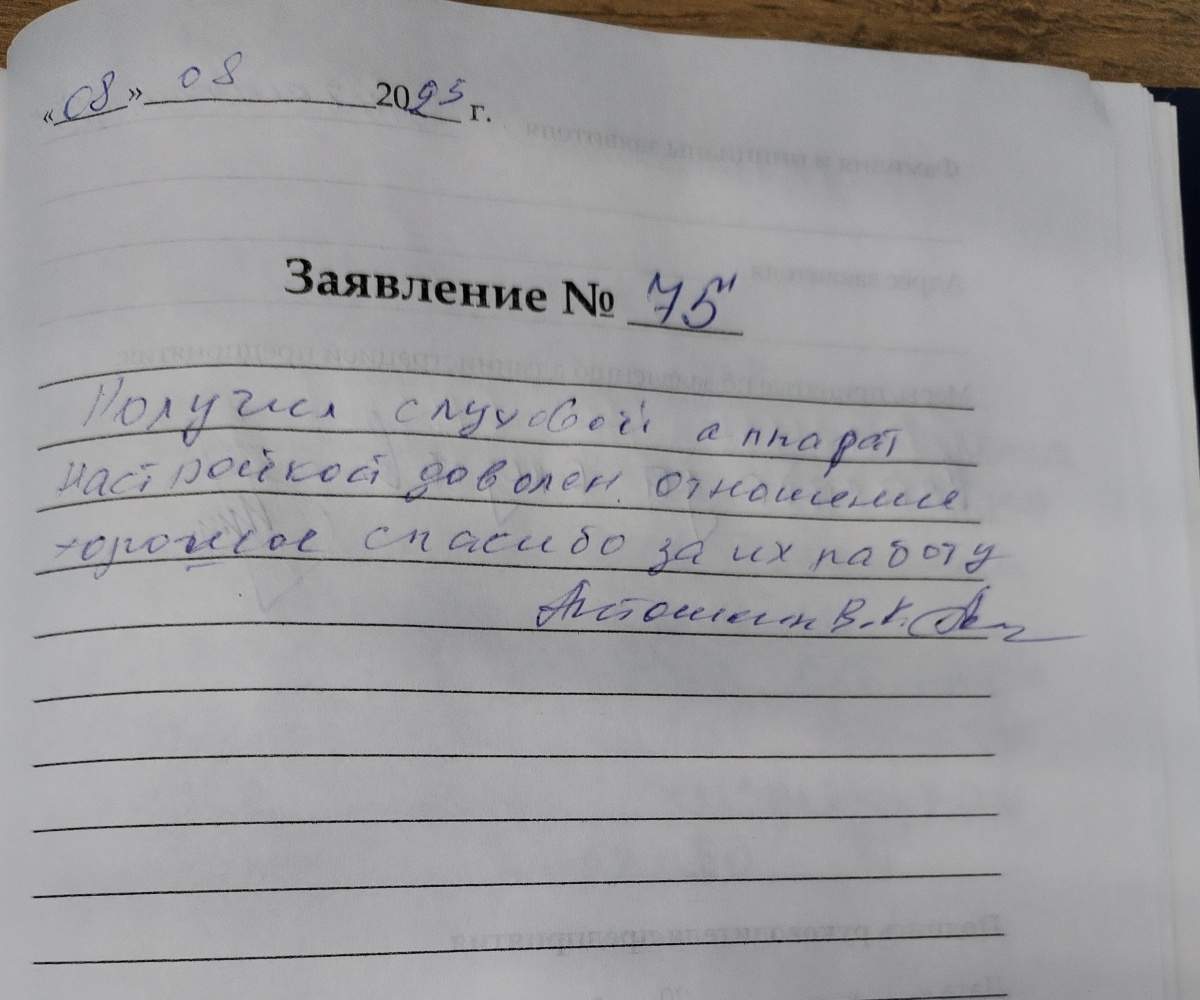 «08» 08 2025 г.
Заявление № 75
Получил слуховой аппарат
настройкой доволен. отношение
хорошое спасибо за их работу
Антошкин В.К.